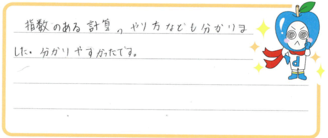 指数のある計算、やり方なども分かりま
した。分かりやすかったです。